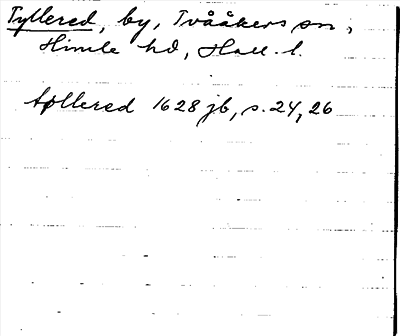 Tyllered, by, Tvååkers sn,
Himle hd, Hall. l.
tøllered 1628 jb, s. 24, 26